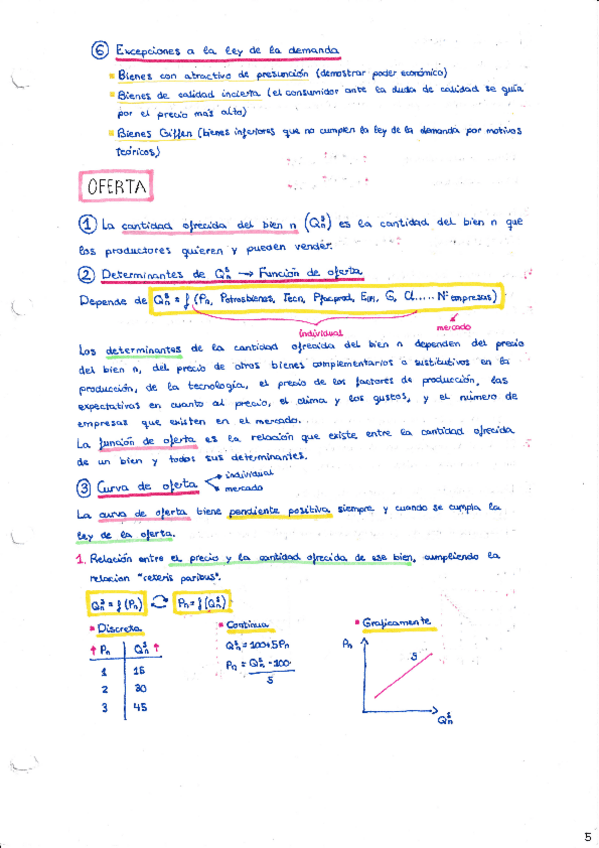 ⑥ Excepciones a la ley de la demanda
Bienes con atractivo de presunción (demostrar poder económico)
Bienes de calidad incierta (el consumidor ante la duda de calidad se guía
por el precio más alto)
Bienes Giffen (bienes inferiores que no cumplen la ley de la demanda por motivos
teóricos)
OFERTA
① La cantidad ofrecida del bien n (Qₙˢ) es la cantidad del bien n que
los productores quieren y pueden vender.
② Determinantes de Qₙˢ → Función de oferta
Depende de Qₙˢ = f (Pn, Potros bienes, Tecn, Pfac.prod, E(P), G, Cl..... Nº empresas)
individual
mercado
Los determinantes de la cantidad ofrecida del bien n dependen del precio
del bien n, del precio de otros bienes complementarios o sustitutivos en la
producción, de la tecnología, el precio de los factores de producción, las
expectativas en cuanto al precio, el clima y los gustos, y el número de
empresas que existen en el mercado.
La función de oferta es la relación que existe entre la cantidad ofrecida
de un bien y todos sus determinantes.
③ Curva de oferta
individual
mercado
La curva de oferta biene pendiente positiva, siempre y cuando se cumpla la
ley de la oferta.
1. Relación entre el precio y la cantidad ofrecida de ese bien, cumpliendo la
relacion "ceteris paribus".
Qₙˢ = f (Pn) Pn = f (Qₙˢ)
Discreta
↑ Pn Qₙˢ ↑
1 15
2 30
3 45
Continua
Qₙˢ = 100+5Pn
Pn = Qₙˢ - 100
5
Graficamente
Pn
S
Qₙˢ
5